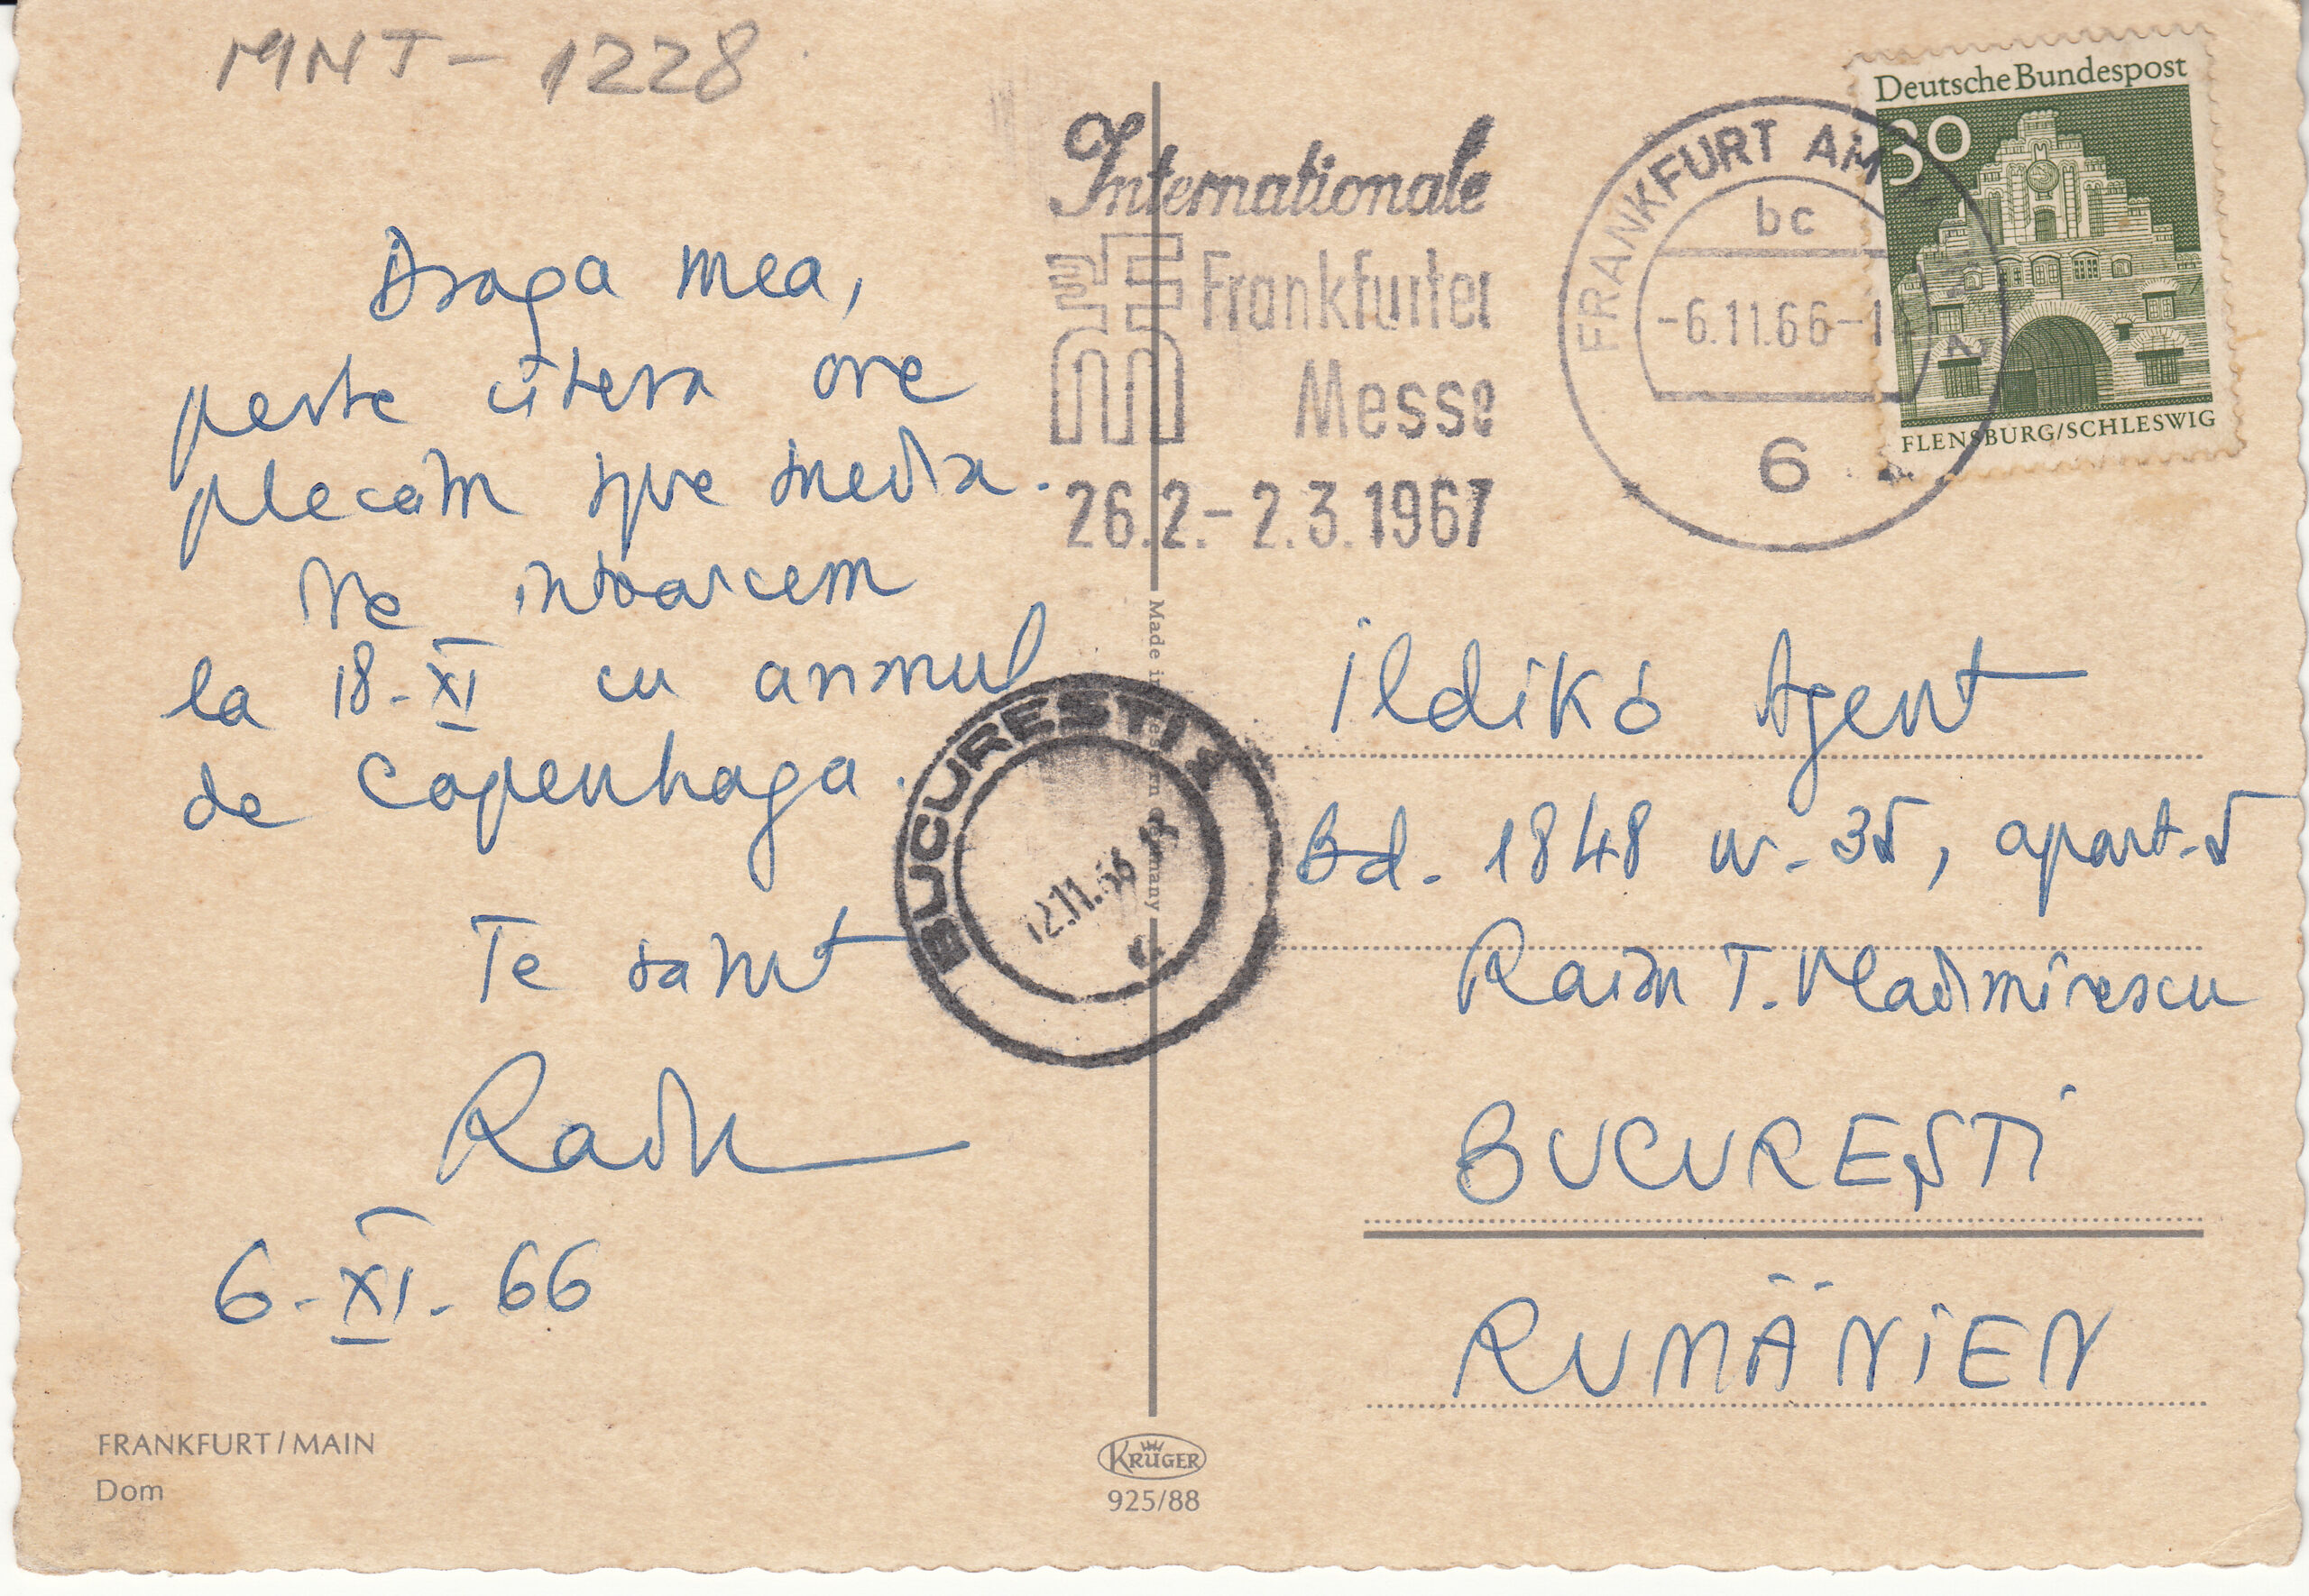 MNT-1228
Internationale
Frankfurter
Messe
26.2.-2.3.1967
FRANKFURT AM
bc
-6.11.66-1
6
Deutsche Bundespost
30
FLENSBURG/SCHLESWIG
Draga mea,
peste câteva ore
plecăm spre Suedia.
Ne întoarcem
la 18-XI cu avionul
de Copenhaga.
Te sărut
Radu
6-XI-66
BUCUREȘTI
12.11.66
Made in Western Germany
Ildikó Agent
Bd. 1848 nr. 35, apart. 5
Raion T. Vladimirescu
BUCUREȘTI
RUMÄNIEN
FRANKFURT/MAIN
Dom
KRÜGER
925/88